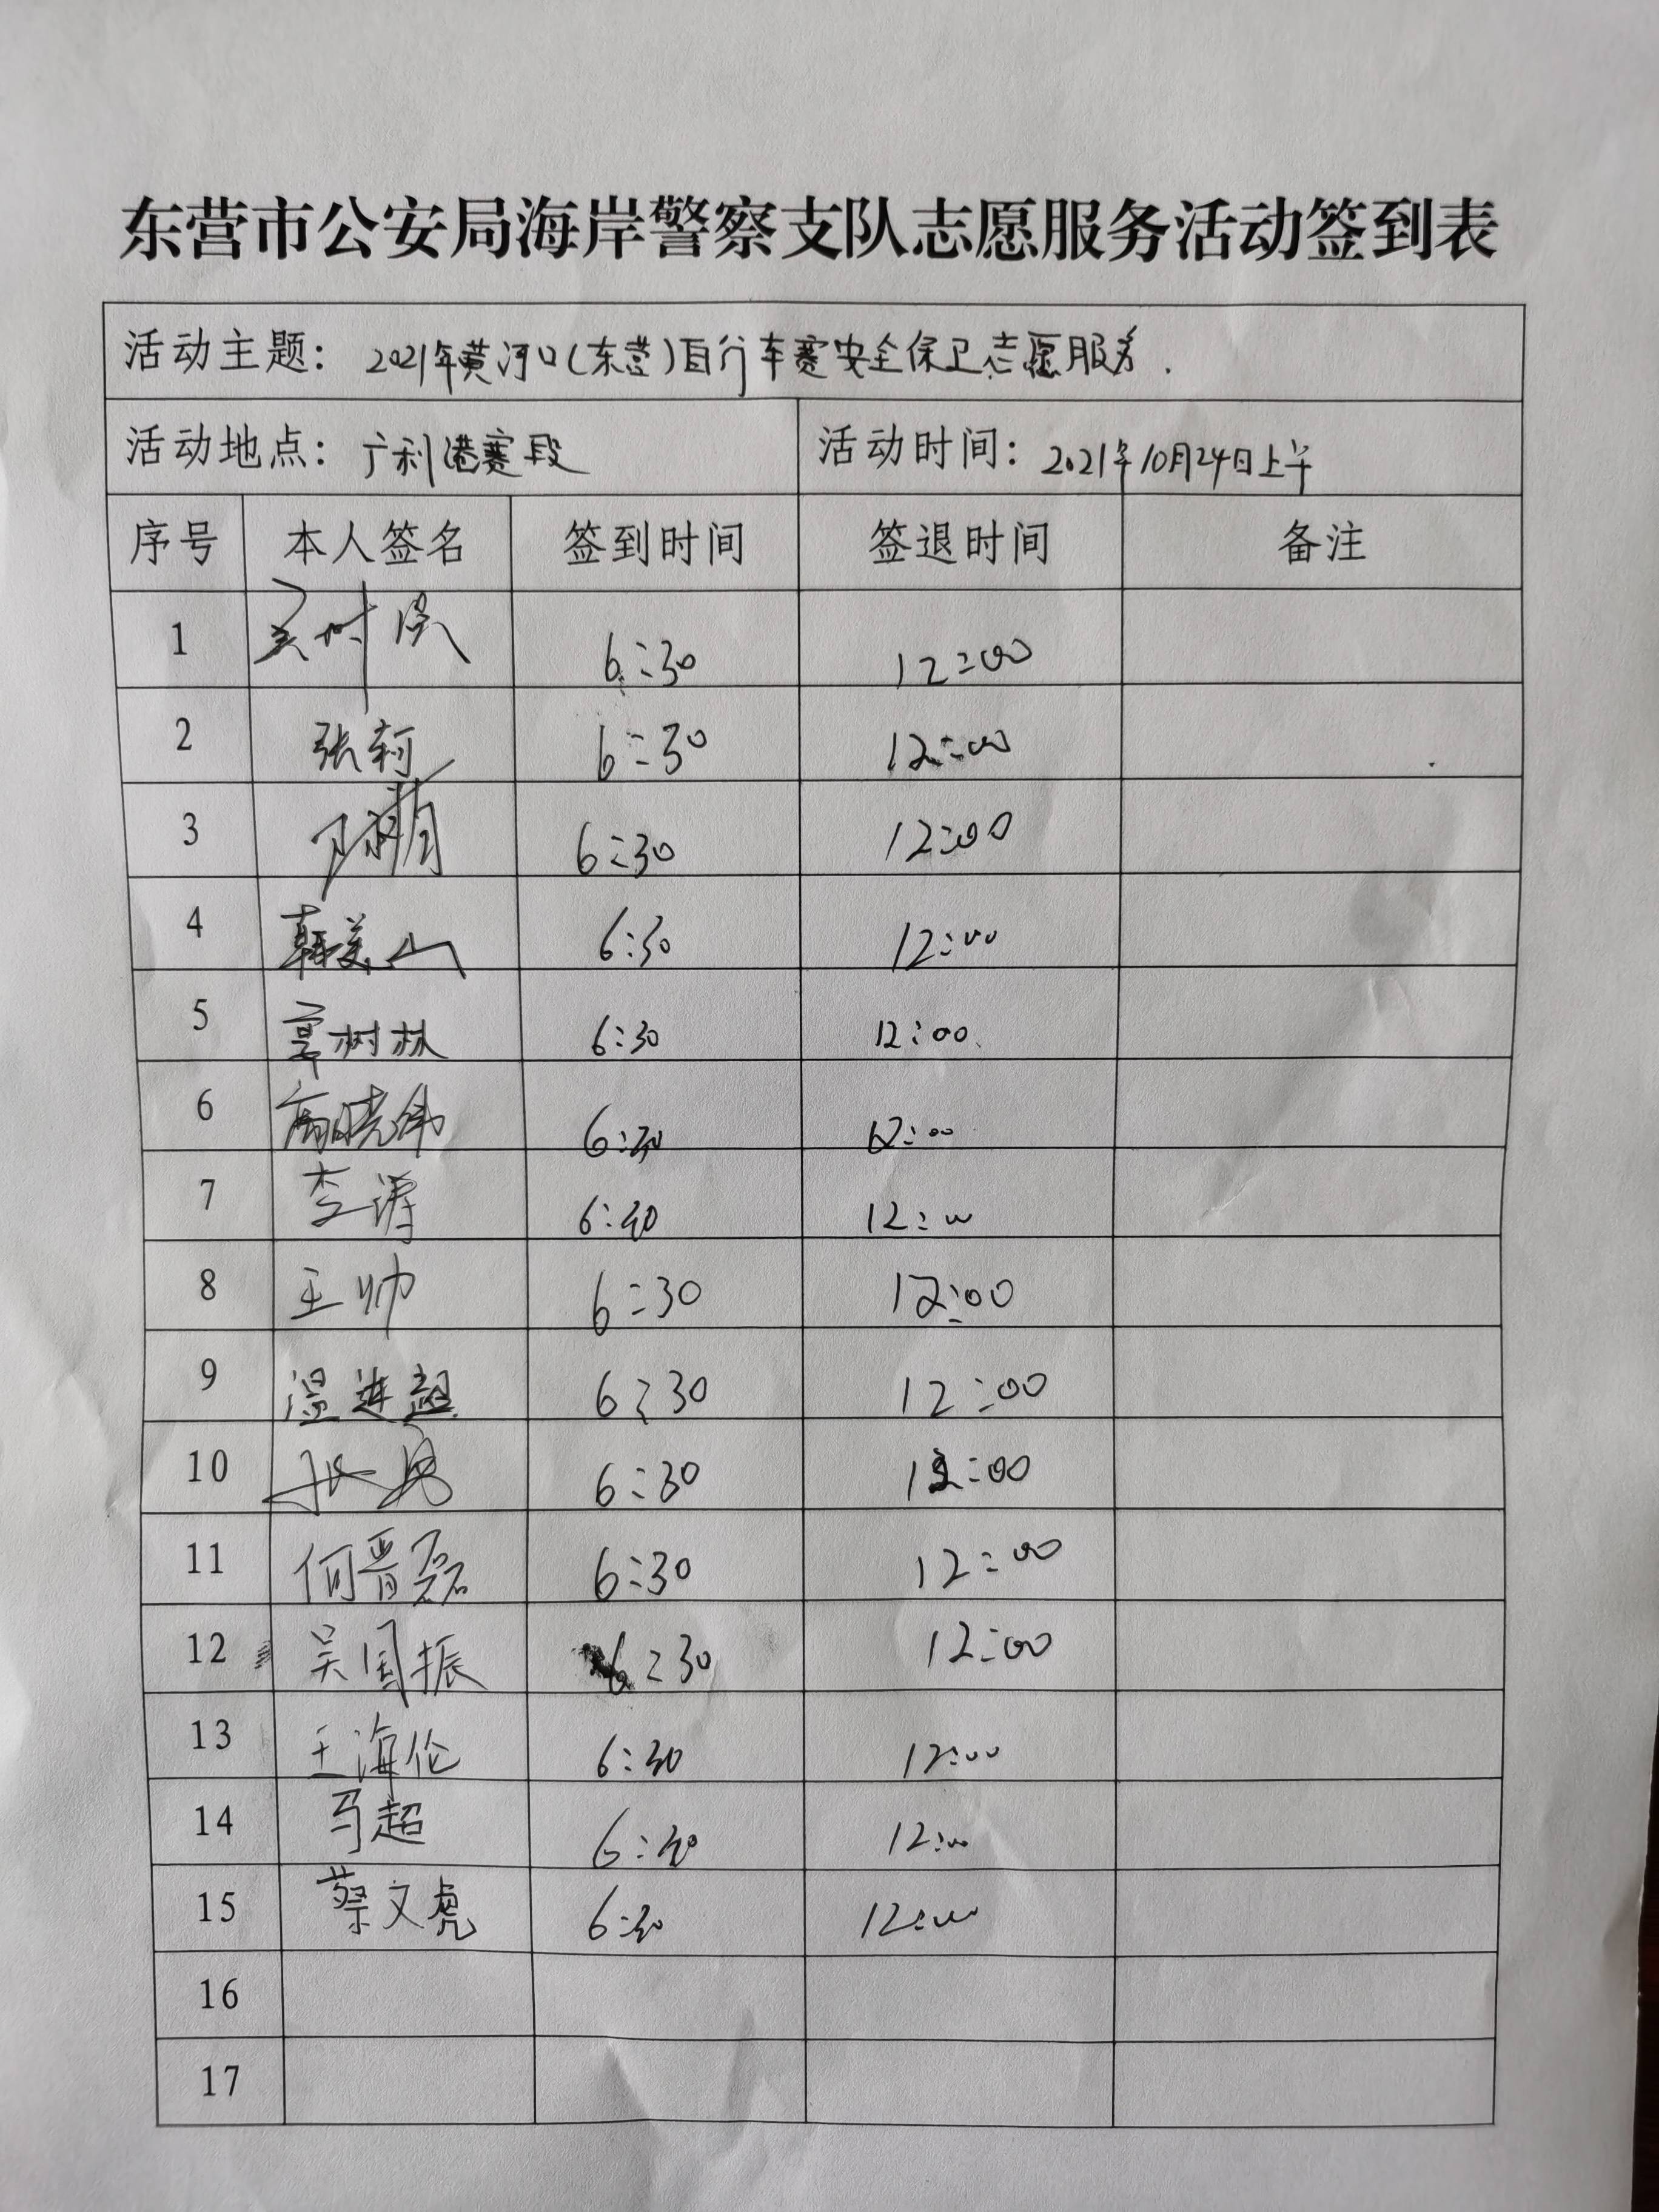 东营市公安局海岸警察支队志愿服务活动签到表
活动主题： 2021年黄河口(东营)自行车赛安全保卫志愿服务.
活动地点： 广利港赛段 活动时间： 2021年10月24日上午
序号 本人签名 签到时间 签退时间 备注
1 6:30 12:00
2 张轲 6:30 12:00
3 6:30 12:00
4 韩美山 6:30 12:00
5 树林 6:30 12:00
6 高晓伟 6:30 12:00
7 李涛 6:30 12:00
8 王帅 6:30 12:00
9 温进超 6:30 12:00
10 6:30 12:00
11 何晋磊 6:30 12:00
12 吴国振 6:30 12:00
13 王海伦 6:30 12:00
14 马超 6:30 12:00
15 蔡文虎 6:30 12:00
16
17